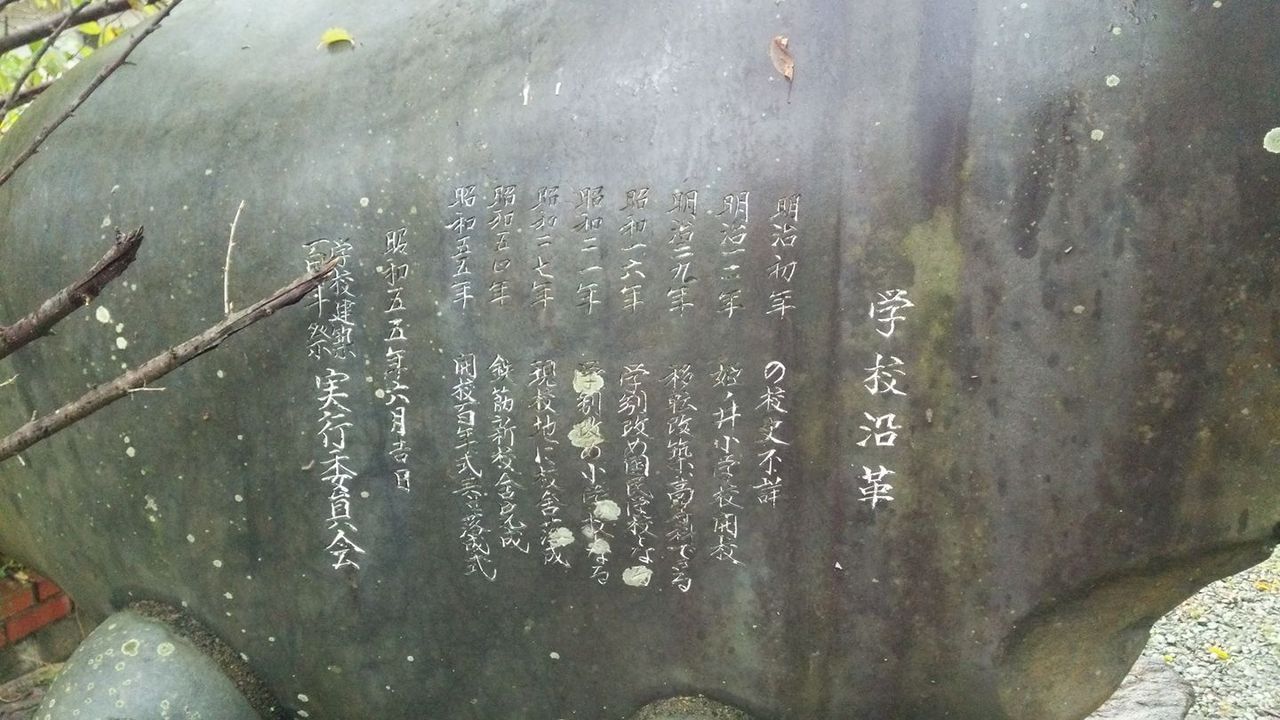 学校沿革
明治初年 の校史不詳
明治一二年 姫ノ井小学校開校
明治二九年 移転改築、高等科できる
昭和一六年 学制改め国民学校となる
昭和二一年 学制改め小学校となる
昭和二七年 現校地に校舎落成
昭和五四年 鉄筋新校舎完成
昭和五五年 開校百年式典 落成式
昭和五五年六月吉日
学校建築
百年祭 実行委員会